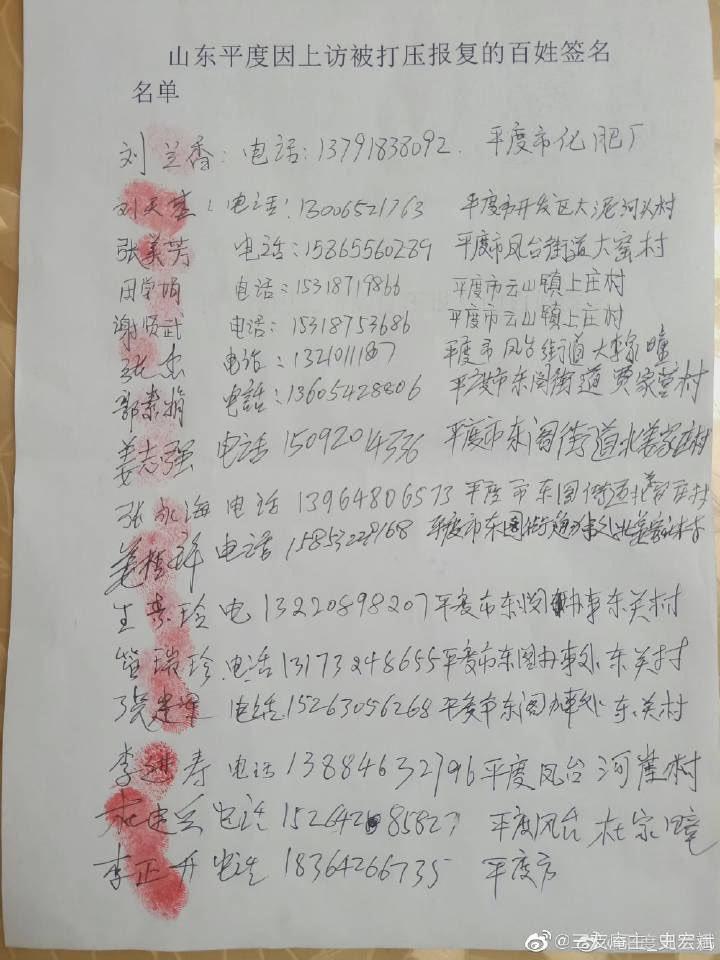 山东平度因上访被打压报复的百姓签名
名单
刘兰香：电话：13791838092. 平度市化肥厂
刘天喜：电话：13006521763 平度市开发区大泥河头村
张美芳 电话：15865560289 平度市凤台街道大窑村
田学娟 电话：15318719866 平度市云山镇上庄村
谢顺武 电话：15318753686 平度市云山镇上庄村
张杰 电话：平度市凤台街道大李家疃
郭素娟 電話：13605428806 平度市东阁街道贾家营村
姜志强 电话 15092014336 平度市东阁街道北姜家庄村
张永海 电话 13964806573 平度市东阁街道北姜家庄村
姜 电话 平度市东阁街道办事处北姜家庄村
生素玲 电 13220898207 平度市东阁办事东关村
瑞珍 电话 13173248655 平度市东阁办事处东关村
电话 15263056268 平度市东阁办事处东关村
李进寿 电话 13884632796 平度凤台河崖村
杜建兵 电话 平度凤台杜家疃
李正开 电话 18364266735 平度市